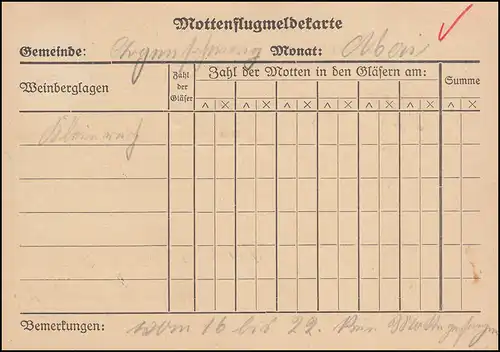 Mottenflugmeldekarte
Gemeinde: Monat: Mai
Zahl der Gläser
Zahl der Motten in den Gläsern am:
Summe
Weinberglagen
^ X ^ X ^ X ^ X ^ X ^ X ^ X
Bemerkungen: vom 16 bis 22. Motten gefangen